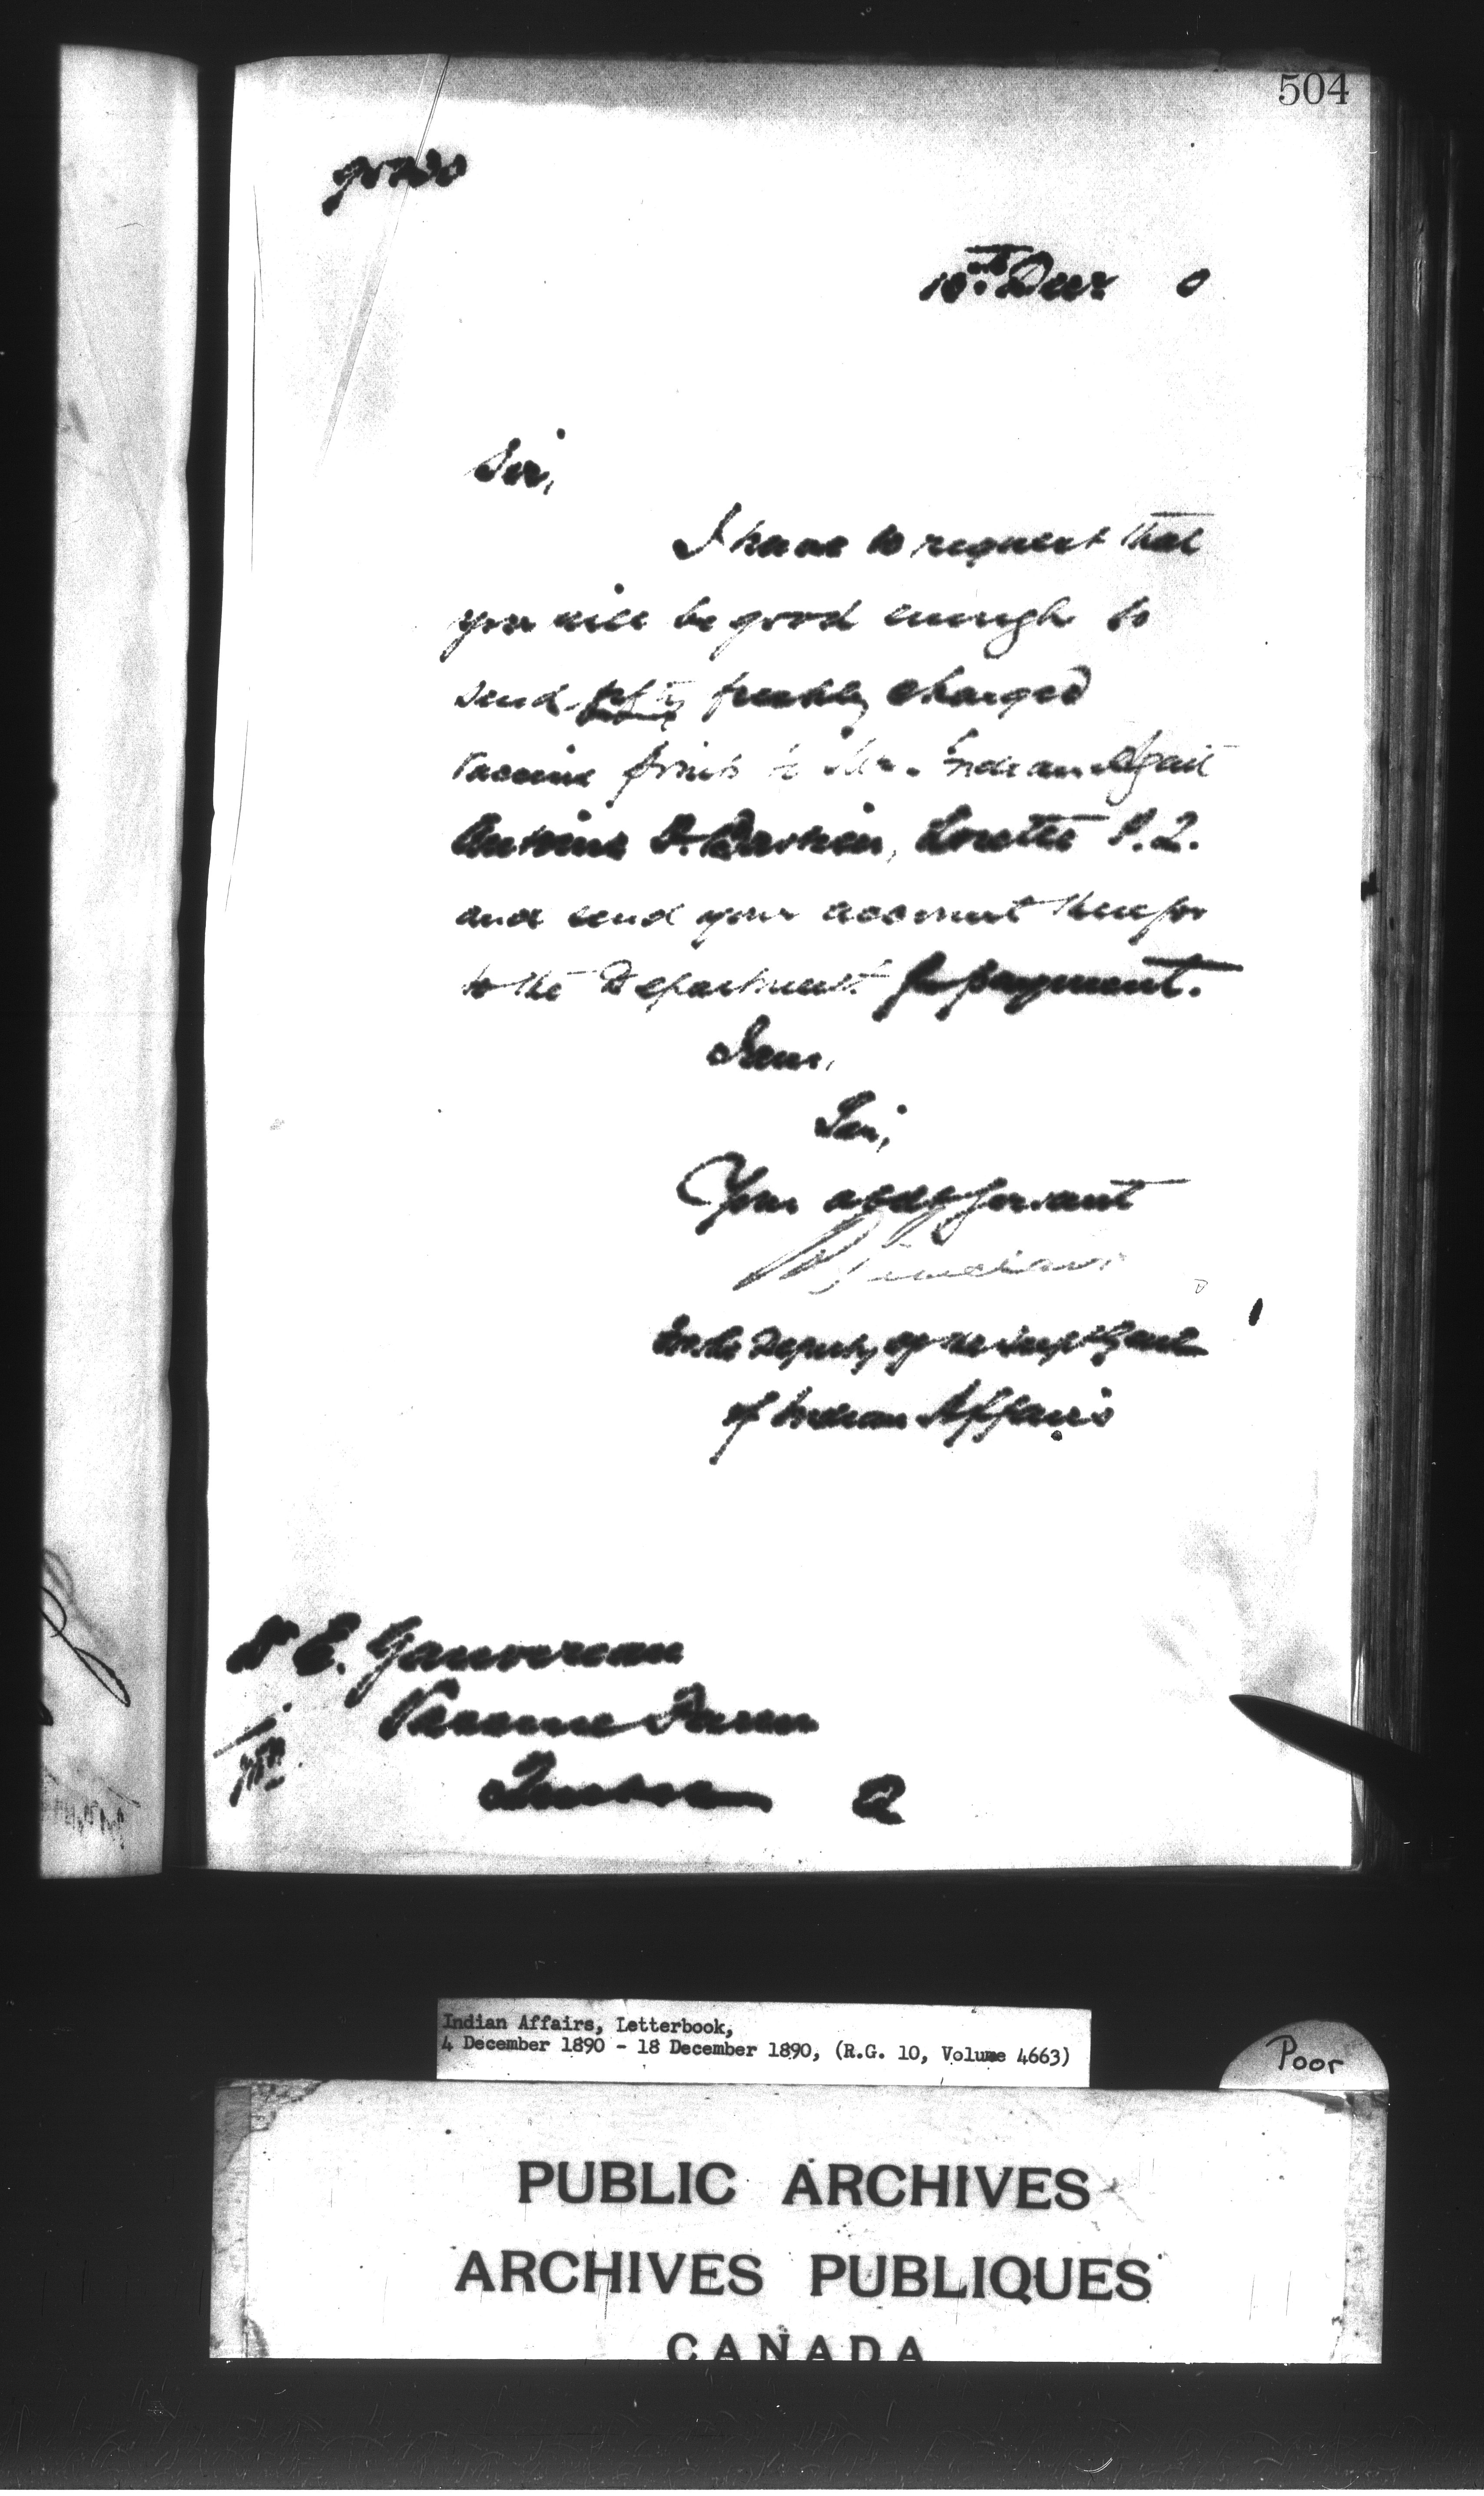 504
Dec 0
Sir,
I have to request that
you will be good enough to
send fifty freshly charged
vaccine points to Mr. Indian Agent
Antoine O. Bastien, Lorette P.Q.
and send your account therefor
to the Department for payment.
I am,
Sir,
Your obedt servant
for the Deputy of the Supt Genl
of Indian Affairs
Dr E. Gauvereau
Vaccine Farm
Quebec Q
Indian Affairs, Letterbook,
4 December 1890 - 18 December 1890, (R.G. 10, Volume 4663)
Poor
PUBLIC ARCHIVES
ARCHIVES PUBLIQUES
CANADA